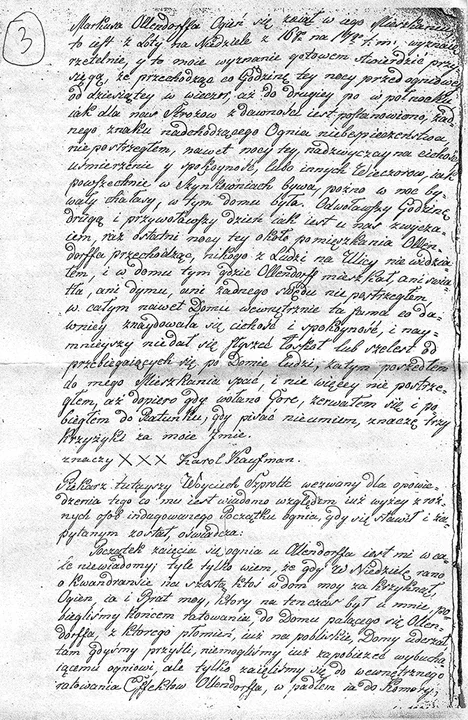 3
Markusa Ollendorffa Ogień się zaiął w iego Mieszkaniu
to iest z Soboty na Niedziele z 16go na 17go t. m. wyznaię
rzetelnie, y to moie wyznanie gotowem stwierdzić przy
sięgą, że przechodząc co Godzinę tey nocy przed ogniową
od dziesiątey w wieczor, aż do drugiey po w pol nocku
iak dla nas Strozow z dawności iest postanowiono, żad
nego znaku nadchodzącego Ognia niebespieczeństwa
nie postrzegłem, nawet nocy tey nadzwyczayna cichość
uśmierzenie y spokoyność, lubo innych Wieczorow, iak
powszechnie w Szynkowniach bywa, pozno w noc by
wały chałasy, w tym domu była. Odwoławszy Godzinę
drugą i przywoławszy dzień iak iest u nas zwycza
iem, raz ostatni nocy tey około pomięszkania Ollen
dorffa przechodząc, nikogo z Ludzi na Ulicy nie widzia
łem, i w domu tym gdzie Ollendorff mieszkał, ani świa
tła, ani dymu, ani żadnego swędu nie postrzegłem,
w całym nawet Domu wewnętrznie ta sama co da
wniey znaydowała się cichość i spokoyność, i nay
mnieyszy niedał się słyszeć łoskot lub szelest od
przebiegaiących się po Domie Ludzi, zatym poszedłem
do mego Mieszkania spać, i nic więcey nie postrze
głem, aż dopiero gdy wołano Gore, zerwałem się i po
biegłem do Ratunku, gdy pisać nieumiem, znaczę trzy
krzyżyki za moie Imie.
znaczy XXX Karol Kaufman.
Piekarz tuteyszy Woyciech Szprott wezwany dla opowie
dzenia tego co mu iest wiadomo względem iuż wyżey z roż
nych osob indagowanego Początku ognia, gdy się stawił i za
pytanym został, oświadcza:
Początek zaięcia się ognia u Ollendorffa iest mi w ca
łe niewiadomy; tyle tylko wiem, że gdy w Niedziele rano
o kwandransie na szostą ktoś w dom moy za krzyknął
Ogień, ia i Brat moy, ktory na tenczas był u mnie, po
biegliśmy końcem ratowania do Domu palącego się Ollen
dorffa, z ktorego płomień, iuż na pobliskie Domy uderzał
tam gdyśmy przyśli, niemogliśmy iuż zapobieżeć wybucha
iącemu ogniowi ale tylko zaięliśmy się do wewnętrznego
ratowania Effektow Ollendorffa, w padłem ia do Komory,